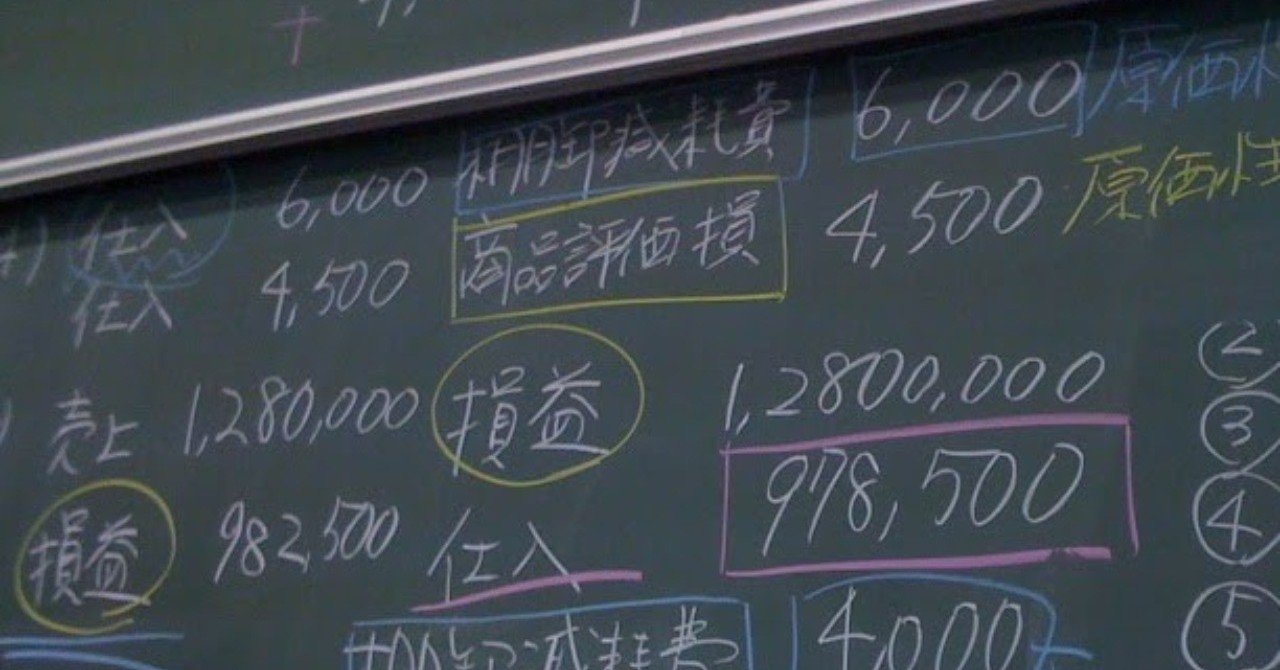 仕入 6,000 棚卸減耗費 6,000 原価性
仕入 4,500 商品評価損 4,500 原価性
売上 1,280,000 損益 1,2800,000
損益 982,500 仕入 978,500
棚卸減耗費 4,000
②
③
④
⑤